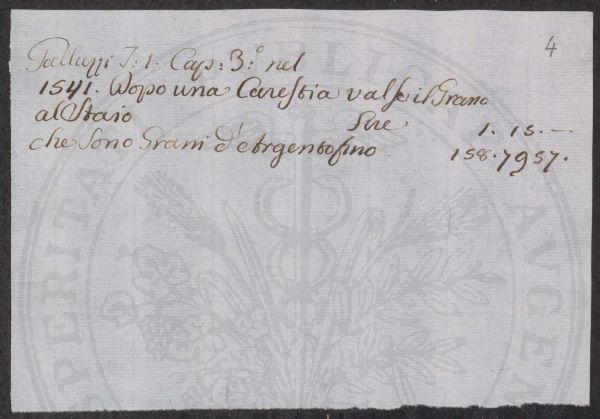 4
Galluzzi T: 1. Cap: 3.º nel
1541. Dopo una Carestia valse il Grano
al Staio Lire 1. 15. —
che sono Grani d'Argento fino 158. 7957.
PERITAS PUBLICA AUGE